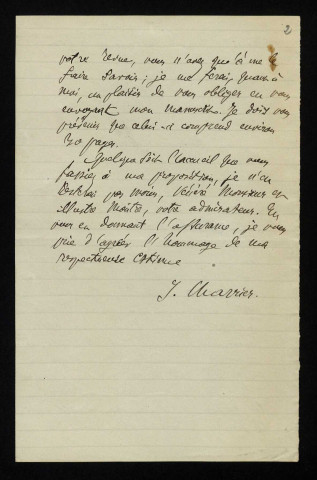 2
votre revue, vous n'avez qu'à me le
faire savoir ; je me ferai, quant à
moi, un plaisir de vous obliger en vous
envoyant mon manuscrit. Je dois vous
prévenir que celui-ci comprend environ
pages.
Quelque soit l'accueil que vous
fassiez à ma proposition, je n'en
pas moins, Monsieur et
illustre Maître, votre admirateur. En
vous en donnant l'assurance, je vous
prie d'agréer l'hommage de ma
respectueuse estime
J. Charrier.